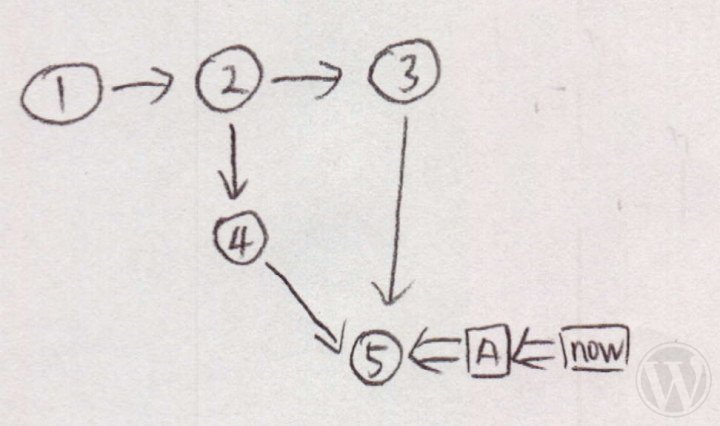 1 2 3
4
5 A now